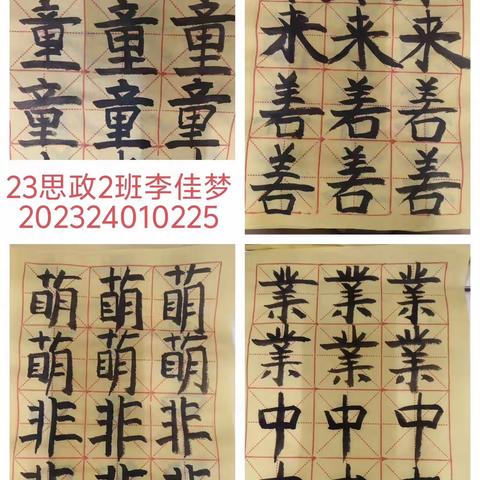 童童童
童童童
来来来
善善善
善善善
23思政2班李佳梦
202324010225
萌萌萌
萌萌萌
非非非
非非非
業業業
業業業
中中中